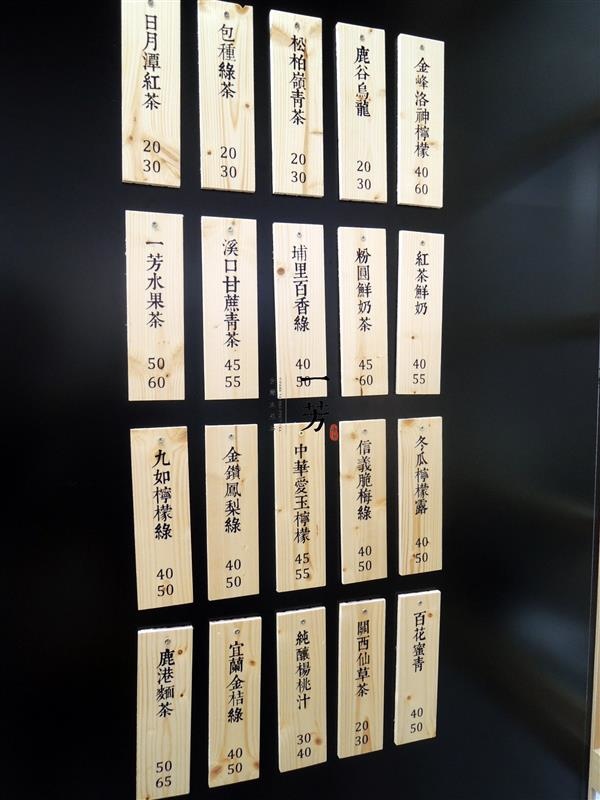 日月潭紅茶
20
30
包種綠茶
20
30
松柏嶺青茶
20
30
鹿谷烏龍
20
30
金峰洛神檸檬
40
60
一芳水果茶
50
60
溪口甘蔗青茶
45
55
埔里百香綠
40
50
粉圓鮮奶茶
45
60
紅茶鮮奶
40
55
一芳
九如檸檬綠
40
50
金鑽鳳梨綠
40
50
中華愛玉檸檬
45
55
信義脆梅綠
40
50
冬瓜檸檬露
40
50
鹿港麵茶
50
65
宜蘭金桔綠
40
50
純釀楊桃汁
30
40
關西仙草茶
20
30
百花蜜青
40
50